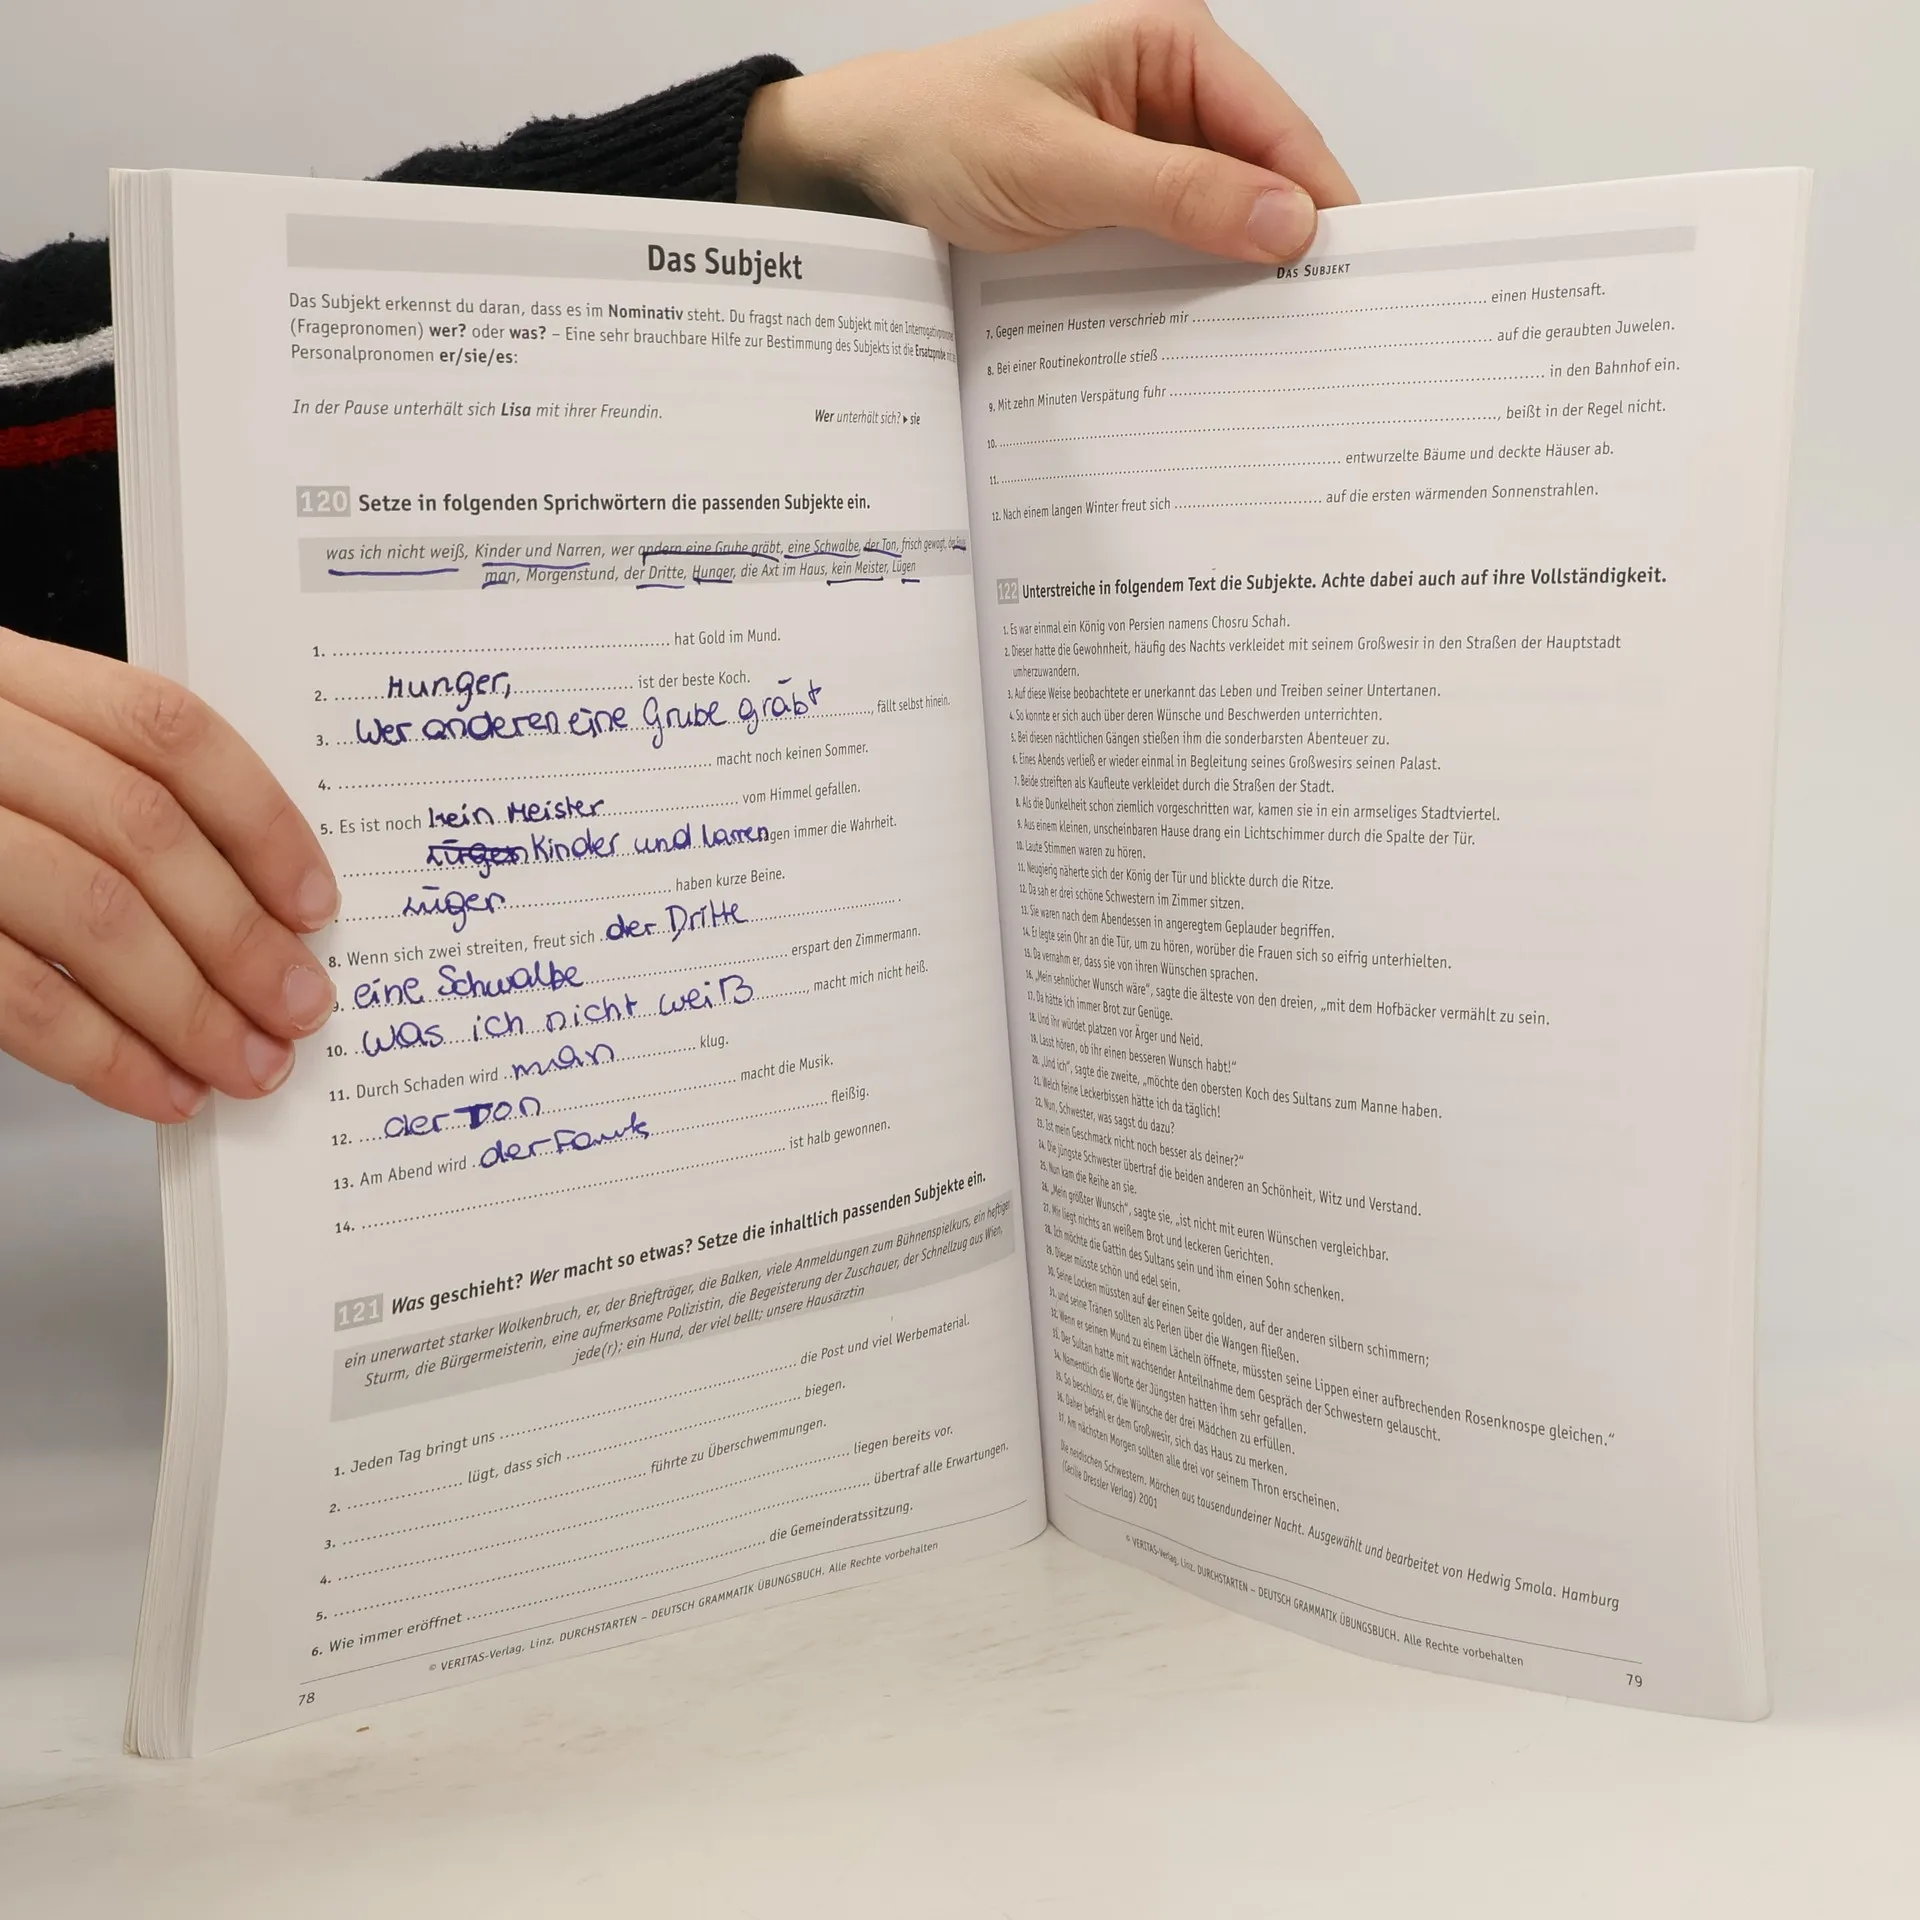 Das Subjekt
Das Subjekt erkennst du daran, dass es im Nominativ steht. Du fragst nach dem Subjekt mit den
(Fragepronomen) wer? oder was? – Eine sehr brauchbare Hilfe zur Bestimmung des Subjekts ist die Ersatzprobe
Personalpronomen er/sie/es:
In der Pause unterhält sich Lisa mit ihrer Freundin.
Wer unterhält sich? ▸ sie
120 Setze in folgenden Sprichwörtern die passenden Subjekte ein.
was ich nicht weiß, Kinder und Narren, wer andern eine Grube gräbt, eine Schwalbe, der Ton, frisch gewagt,
man, Morgenstund, der Dritte, Hunger, die Axt im Haus, kein Meister, Lügen
1. ........ hat Gold im Mund.
2. Hunger, ........ ist der beste Koch.
3. Wer anderen eine Grube gräbt ........, fällt selbst hinein.
4. ........ macht noch keinen Sommer.
5. Es ist noch kein Meister ........ vom Himmel gefallen.
Kinder und ........gen immer die Wahrheit.
........ haben kurze Beine.
8. Wenn sich zwei streiten, freut sich der Dritte ........ .
9. eine Schwalbe ........ erspart den Zimmermann.
10. Was ich nicht weiß ........, macht mich nicht heiß.
11. Durch Schaden wird man ........ klug.
12. der Ton ........ macht die Musik.
13. Am Abend wird der ........ fleißig.
14. ........ ist halb gewonnen.
121 Was geschieht? Wer macht so etwas? Setze die inhaltlich passenden Subjekte ein.
ein unerwartet starker Wolkenbruch, er, der Briefträger, die Balken, viele Anmeldungen zum Bühnenspielkurs, ein heftiger
Sturm, die Bürgermeisterin, eine aufmerksame Polizistin, die Begeisterung der Zuschauer, der Schnellzug aus Wien,
jede(r); ein Hund, der viel bellt; unsere Hausärztin
1. Jeden Tag bringt uns ........ die Post und viel Werbematerial.
2. ........ lügt, dass sich ........ biegen.
3. ........ führte zu Überschwemmungen.
4. ........ liegen bereits vor.
5. ........ übertraf alle Erwartungen.
6. Wie immer eröffnet ........ die Gemeinderatssitzung.
© VERITAS-Verlag, Linz. DURCHSTARTEN – DEUTSCH GRAMMATIK ÜBUNGSBUCH. Alle Rechte vorbehalten
78
DAS SUBJEKT
7. Gegen meinen Husten verschrieb mir ........ einen Hustensaft.
8. Bei einer Routinekontrolle stieß ........ auf die geraubten Juwelen.
9. Mit zehn Minuten Verspätung fuhr ........ in den Bahnhof ein.
10. ........, beißt in der Regel nicht.
11. ........ entwurzelte Bäume und deckte Häuser ab.
12. Nach einem langen Winter freut sich ........ auf die ersten wärmenden Sonnenstrahlen.
122 Unterstreiche in folgendem Text die Subjekte. Achte dabei auch auf ihre Vollständigkeit.
1. Es war einmal ein König von Persien namens Chosru Schah.
2. Dieser hatte die Gewohnheit, häufig des Nachts verkleidet mit seinem Großwesir in den Straßen der Hauptstadt
umherzuwandern.
3. Auf diese Weise beobachtete er unerkannt das Leben und Treiben seiner Untertanen.
4. So konnte er sich auch über deren Wünsche und Beschwerden unterrichten.
5. Bei diesen nächtlichen Gängen stießen ihm die sonderbarsten Abenteuer zu.
6. Eines Abends verließ er wieder einmal in Begleitung seines Großwesirs seinen Palast.
7. Beide streiften als Kaufleute verkleidet durch die Straßen der Stadt.
8. Als die Dunkelheit schon ziemlich vorgeschritten war, kamen sie in ein armseliges Stadtviertel.
9. Aus einem kleinen, unscheinbaren Hause drang ein Lichtschimmer durch die Spalte der Tür.
10. Laute Stimmen waren zu hören.
11. Neugierig näherte sich der König der Tür und blickte durch die Ritze.
12. Da sah er drei schöne Schwestern im Zimmer sitzen.
13. Sie waren nach dem Abendessen in angeregtem Geplauder begriffen.
14. Er legte sein Ohr an die Tür, um zu hören, worüber die Frauen sich so eifrig unterhielten.
15. Da vernahm er, dass sie von ihren Wünschen sprachen.
16. „Mein sehnlicher Wunsch wäre“, sagte die älteste von den dreien, „mit dem Hofbäcker vermählt zu sein.
17. Da hätte ich immer Brot zur Genüge.
18. Und ihr würdet platzen vor Ärger und Neid.
19. Lasst hören, ob ihr einen besseren Wunsch habt!“
20. „Und ich“, sagte die zweite, „möchte den obersten Koch des Sultans zum Manne haben.
21. Welch feine Leckerbissen hätte ich da täglich!
22. Nun, Schwester, was sagst du dazu?
23. Ist mein Geschmack nicht noch besser als deiner?“
24. Die jüngste Schwester übertraf die beiden anderen an Schönheit, Witz und Verstand.
25. Nun kam die Reihe an sie.
26. „Mein größter Wunsch“, sagte sie, „ist nicht mit euren Wünschen vergleichbar.
27. Mir liegt nichts an weißem Brot und leckeren Gerichten.
28. Ich möchte die Gattin des Sultans sein und ihm einen Sohn schenken.
29. Dieser müsste schön und edel sein.
30. Seine Locken müssten auf der einen Seite golden, auf der anderen silbern schimmern;
31. und seine Tränen sollten als Perlen über die Wangen fließen.
32. Wenn er seinen Mund zu einem Lächeln öffnete, müssten seine Lippen einer aufbrechenden Rosenknospe gleichen.“
33. Der Sultan hatte mit wachsender Anteilnahme dem Gespräch der Schwestern gelauscht.
34. Namentlich die Worte der Jüngsten hatten ihm sehr gefallen.
35. So beschloss er, die Wünsche der drei Mädchen zu erfüllen.
36. Daher befahl er dem Großwesir, sich das Haus zu merken.
37. Am nächsten Morgen sollten alle drei vor seinem Thron erscheinen.
Die neidischen Schwestern. Märchen aus tausendundeiner Nacht. Ausgewählt und bearbeitet von Hedwig Smola. Hamburg
(Cecilie Dressler Verlag) 2001
© VERITAS-Verlag, Linz. DURCHSTARTEN – DEUTSCH GRAMMATIK ÜBUNGSBUCH. Alle Rechte vorbehalten
79